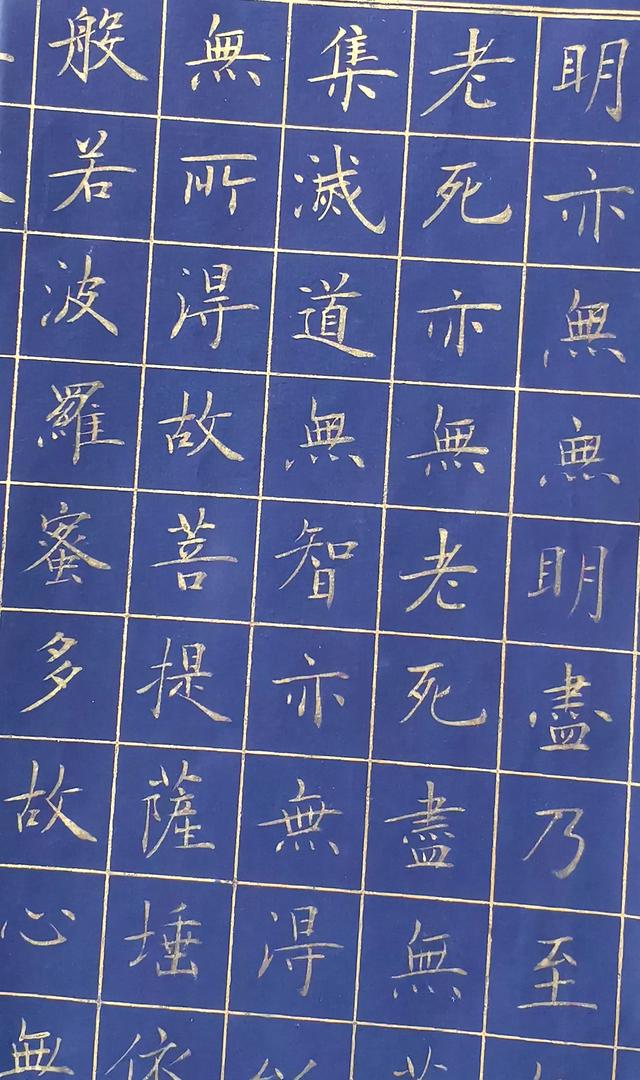 明亦無無明盡乃至
老死亦無老死盡無
集滅道無智亦無得
無所得故菩提薩埵依
般若波羅蜜多故心無